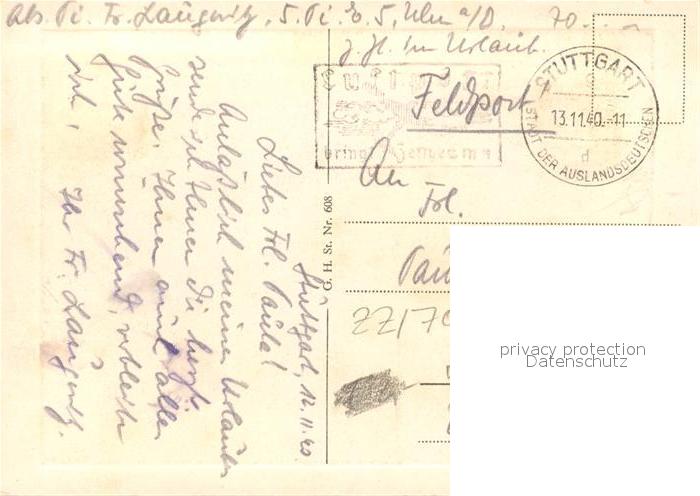 Abs. Pi. Fr. Laugwitz, 5. Pi. E. 5, Ulm a/D.
z. Zt. im Urlaub.
Feldpost
STUTTGART
13.11.40.-11
d
STADT DER AUSLANDSDEUTSCHEN
Luftpost
An
Frl.
Pau
22/70
G. H. St. Nr. 608
Stuttgart, 12.11.40
Liebes Frl. Paula!
Anläßlich meines Urlaubs
sende ich Ihnen die herzl.
Grüße. Ihnen auch alles
Gute wünschend, verbleibe
ich,
Ihr Fr. Laugwitz.
privacy protection
Datenschutz